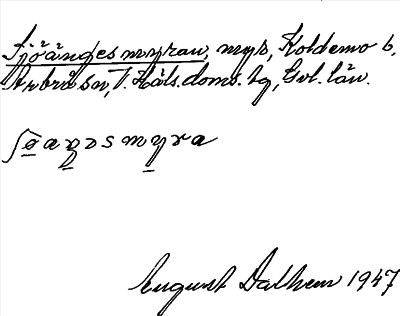 Sjöänges myran, myr, Koldemo b,
Arbrå sn, V. Häls. doms. hg, Gvl. län.
August Dalhem 1947